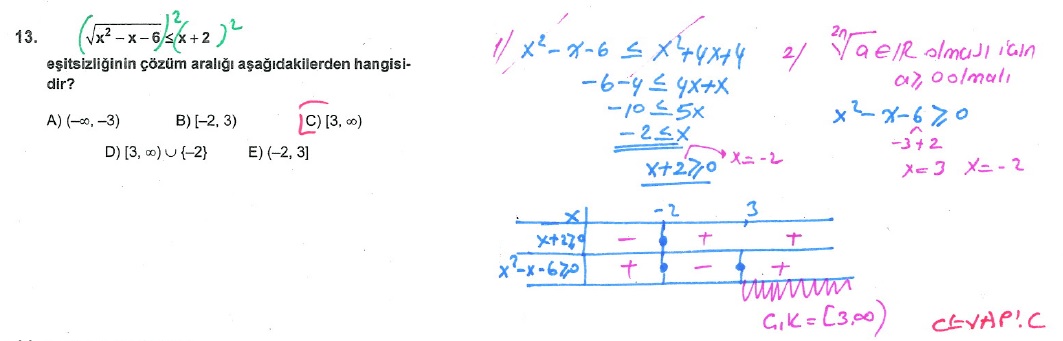 13. (√x² – x – 6)² ≤ (x + 2)²
eşitsizliğinin çözüm aralığı aşağıdakilerden hangisi-
dir?
A) (–∞, –3) B) [–2, 3) C) [3, ∞)
D) [3, ∞) ∪ {–2} E) (–2, 3]
1) x² - x - 6 ≤ x² + 4x + 4
-6 - 4 ≤ 4x + x
-10 ≤ 5x
-2 ≤ x
x + 2 ≥ 0 → x = -2
2) ²ⁿ√a ∈ IR olması için
a ≥ 0 olmalı
x² - x - 6 ≥ 0
-3 + 2
x = 3 x = -2
x -2 3
x+2≥0 - + +
x²-x-6≥0 + - +
Ç.K = [3,∞)
CEVAP: C